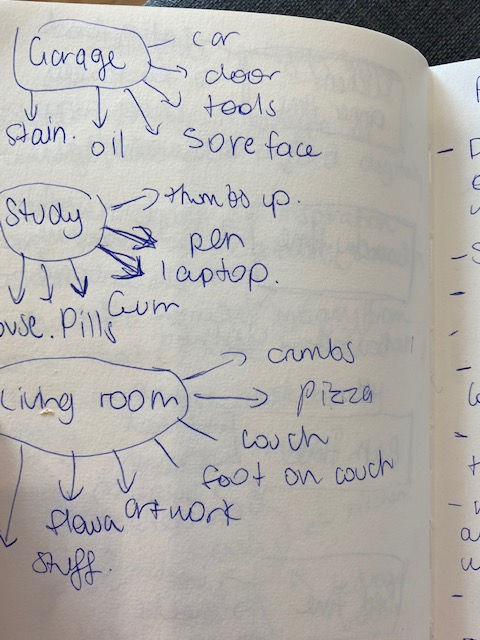 Garage
car
door
tools
Sore face
oil
stain.
Study
thumbs up.
pen
laptop.
Gum
Pills
Living room
crumbs
pizza
couch
foot on couch
artwork
flowa
stuff.